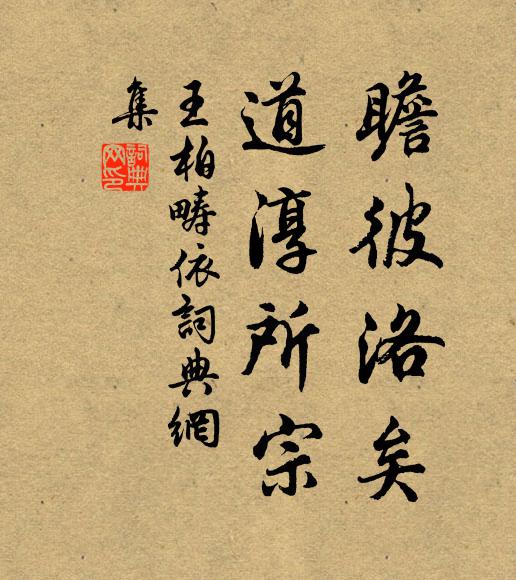 瞻彼洛矣
道淳所宗
王柏疇依詞典網
集
詞典
网印